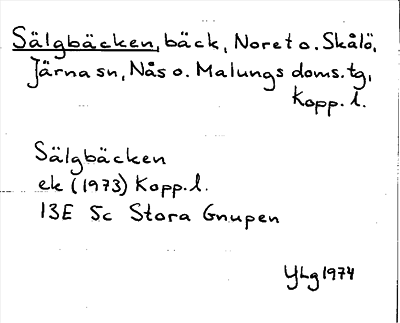 Sälgbäcken, bäck, Noret o. Skålö,
Järna sn, Nås o. Malungs doms.tg,
Kopp. l.
Sälgbäcken
ek (1973) Kopp. l.
13E 5c Stora Gnupen
YLg 1974